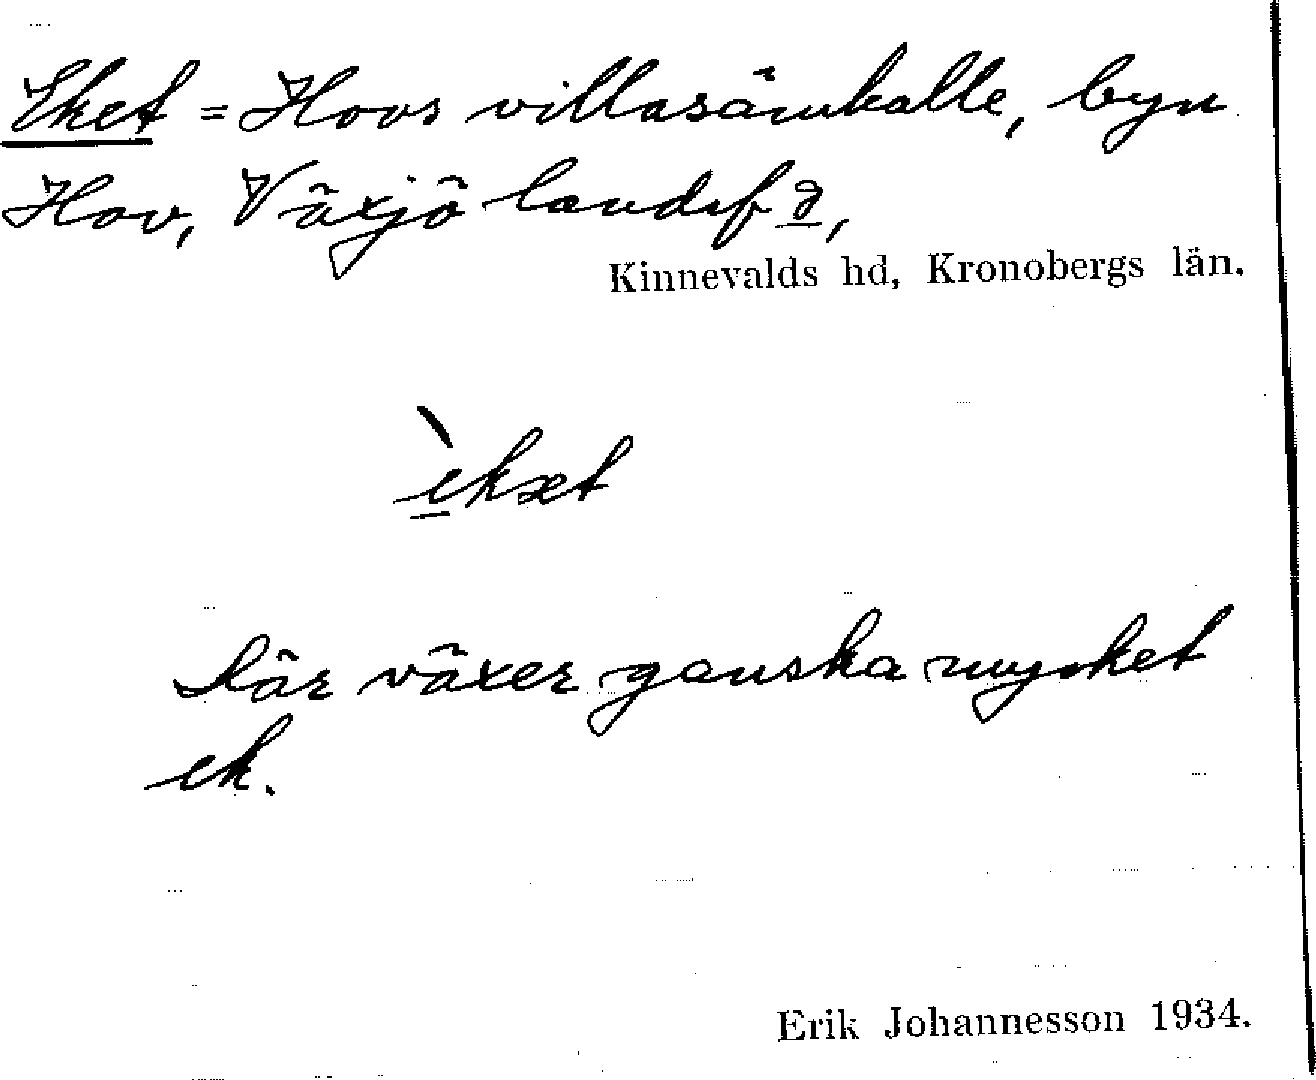 Eket = Hovs villasämhälle, byn
Hov, Växjö landsf d,
Kinnevalds hd, Kronobergs län.
èkæt
Där växer ganska mycket
ek.
Erik Johannesson 1934.